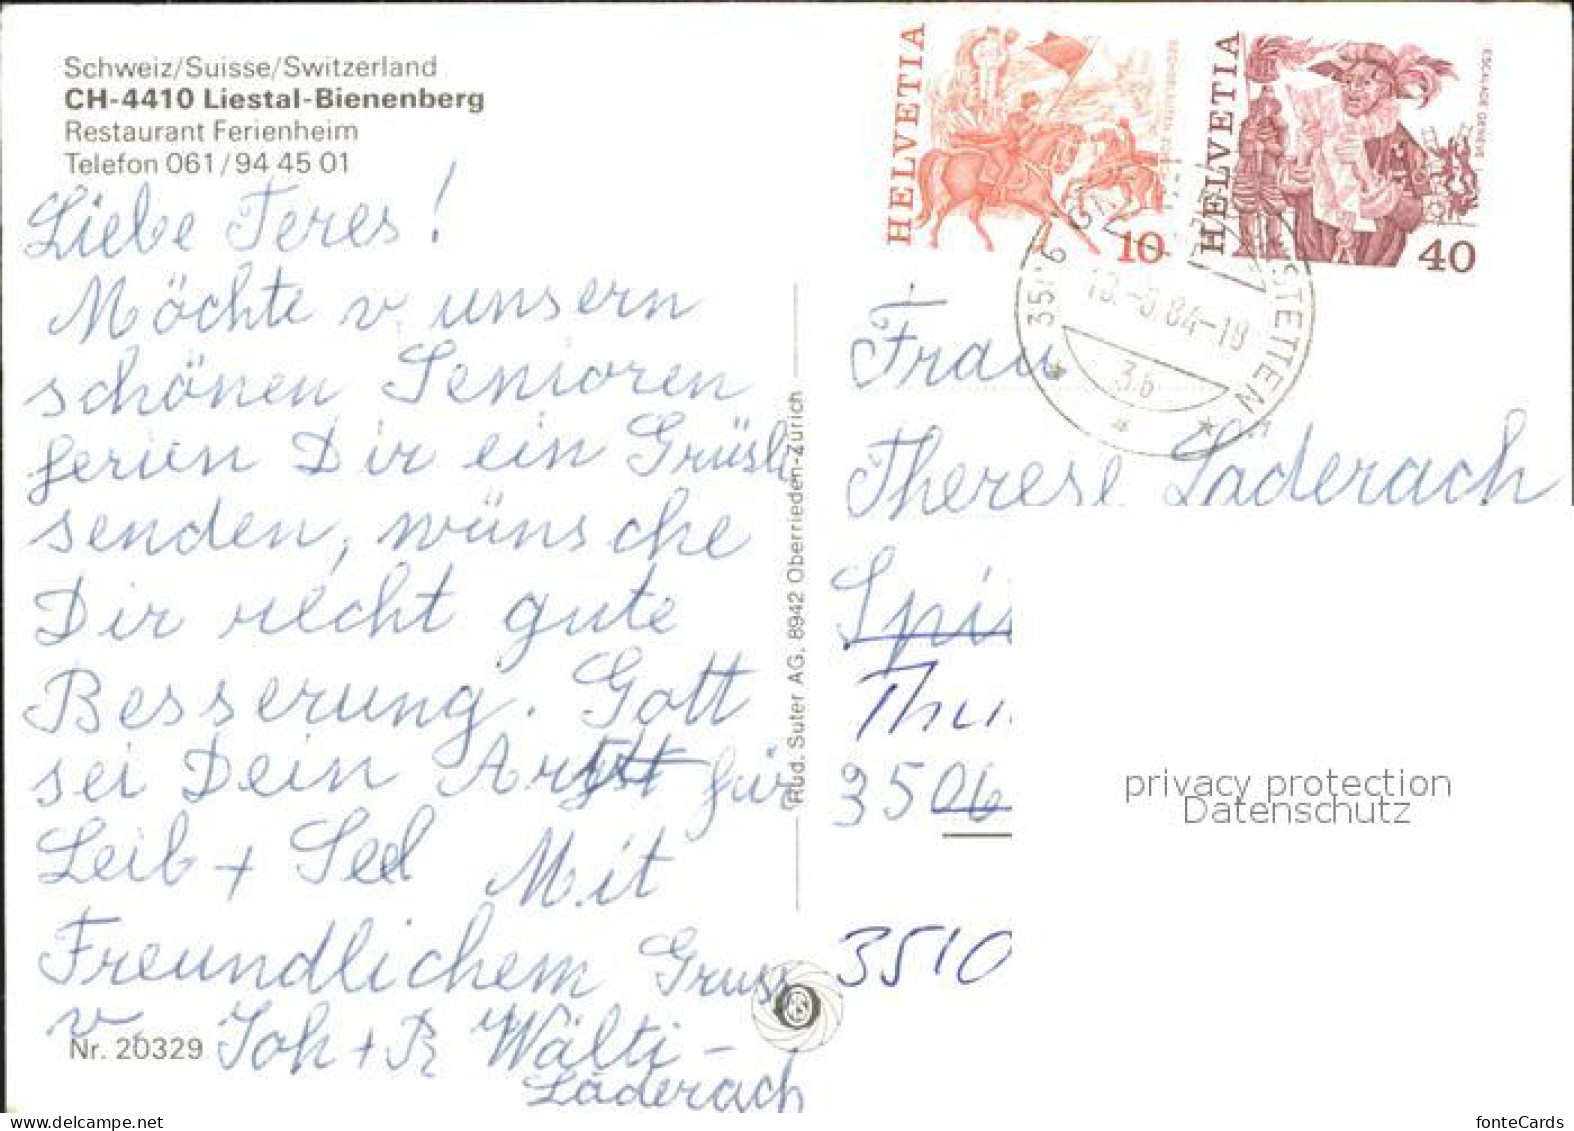 Schweiz/Suisse/Switzerland
CH-4410 Liestal-Bienenberg
Restaurant Ferienheim
Telefon 061/94 45 01
Liebe Teres!
Möchte v unsern
schönen Senioren
ferien Dir ein Grüsli
senden, wünsche
Dir recht gute
Besserung. Gott
sei Dein Arzt für
Leib + Seel Mit
Freundlichem Gruss
v. Joh + R Wälti -
Läderach
Nr. 20329
Rud. Suter AG, 8942 Oberrieden-Zürich
HELVETIA
10
HELVETIA
ESCALADE GENÈVE
40
3506
STETTEN
84-18
3b
Frau
Therese Läderach
3506
3510
privacy protection
Datenschutz
fonteCards
www.delcampe.net